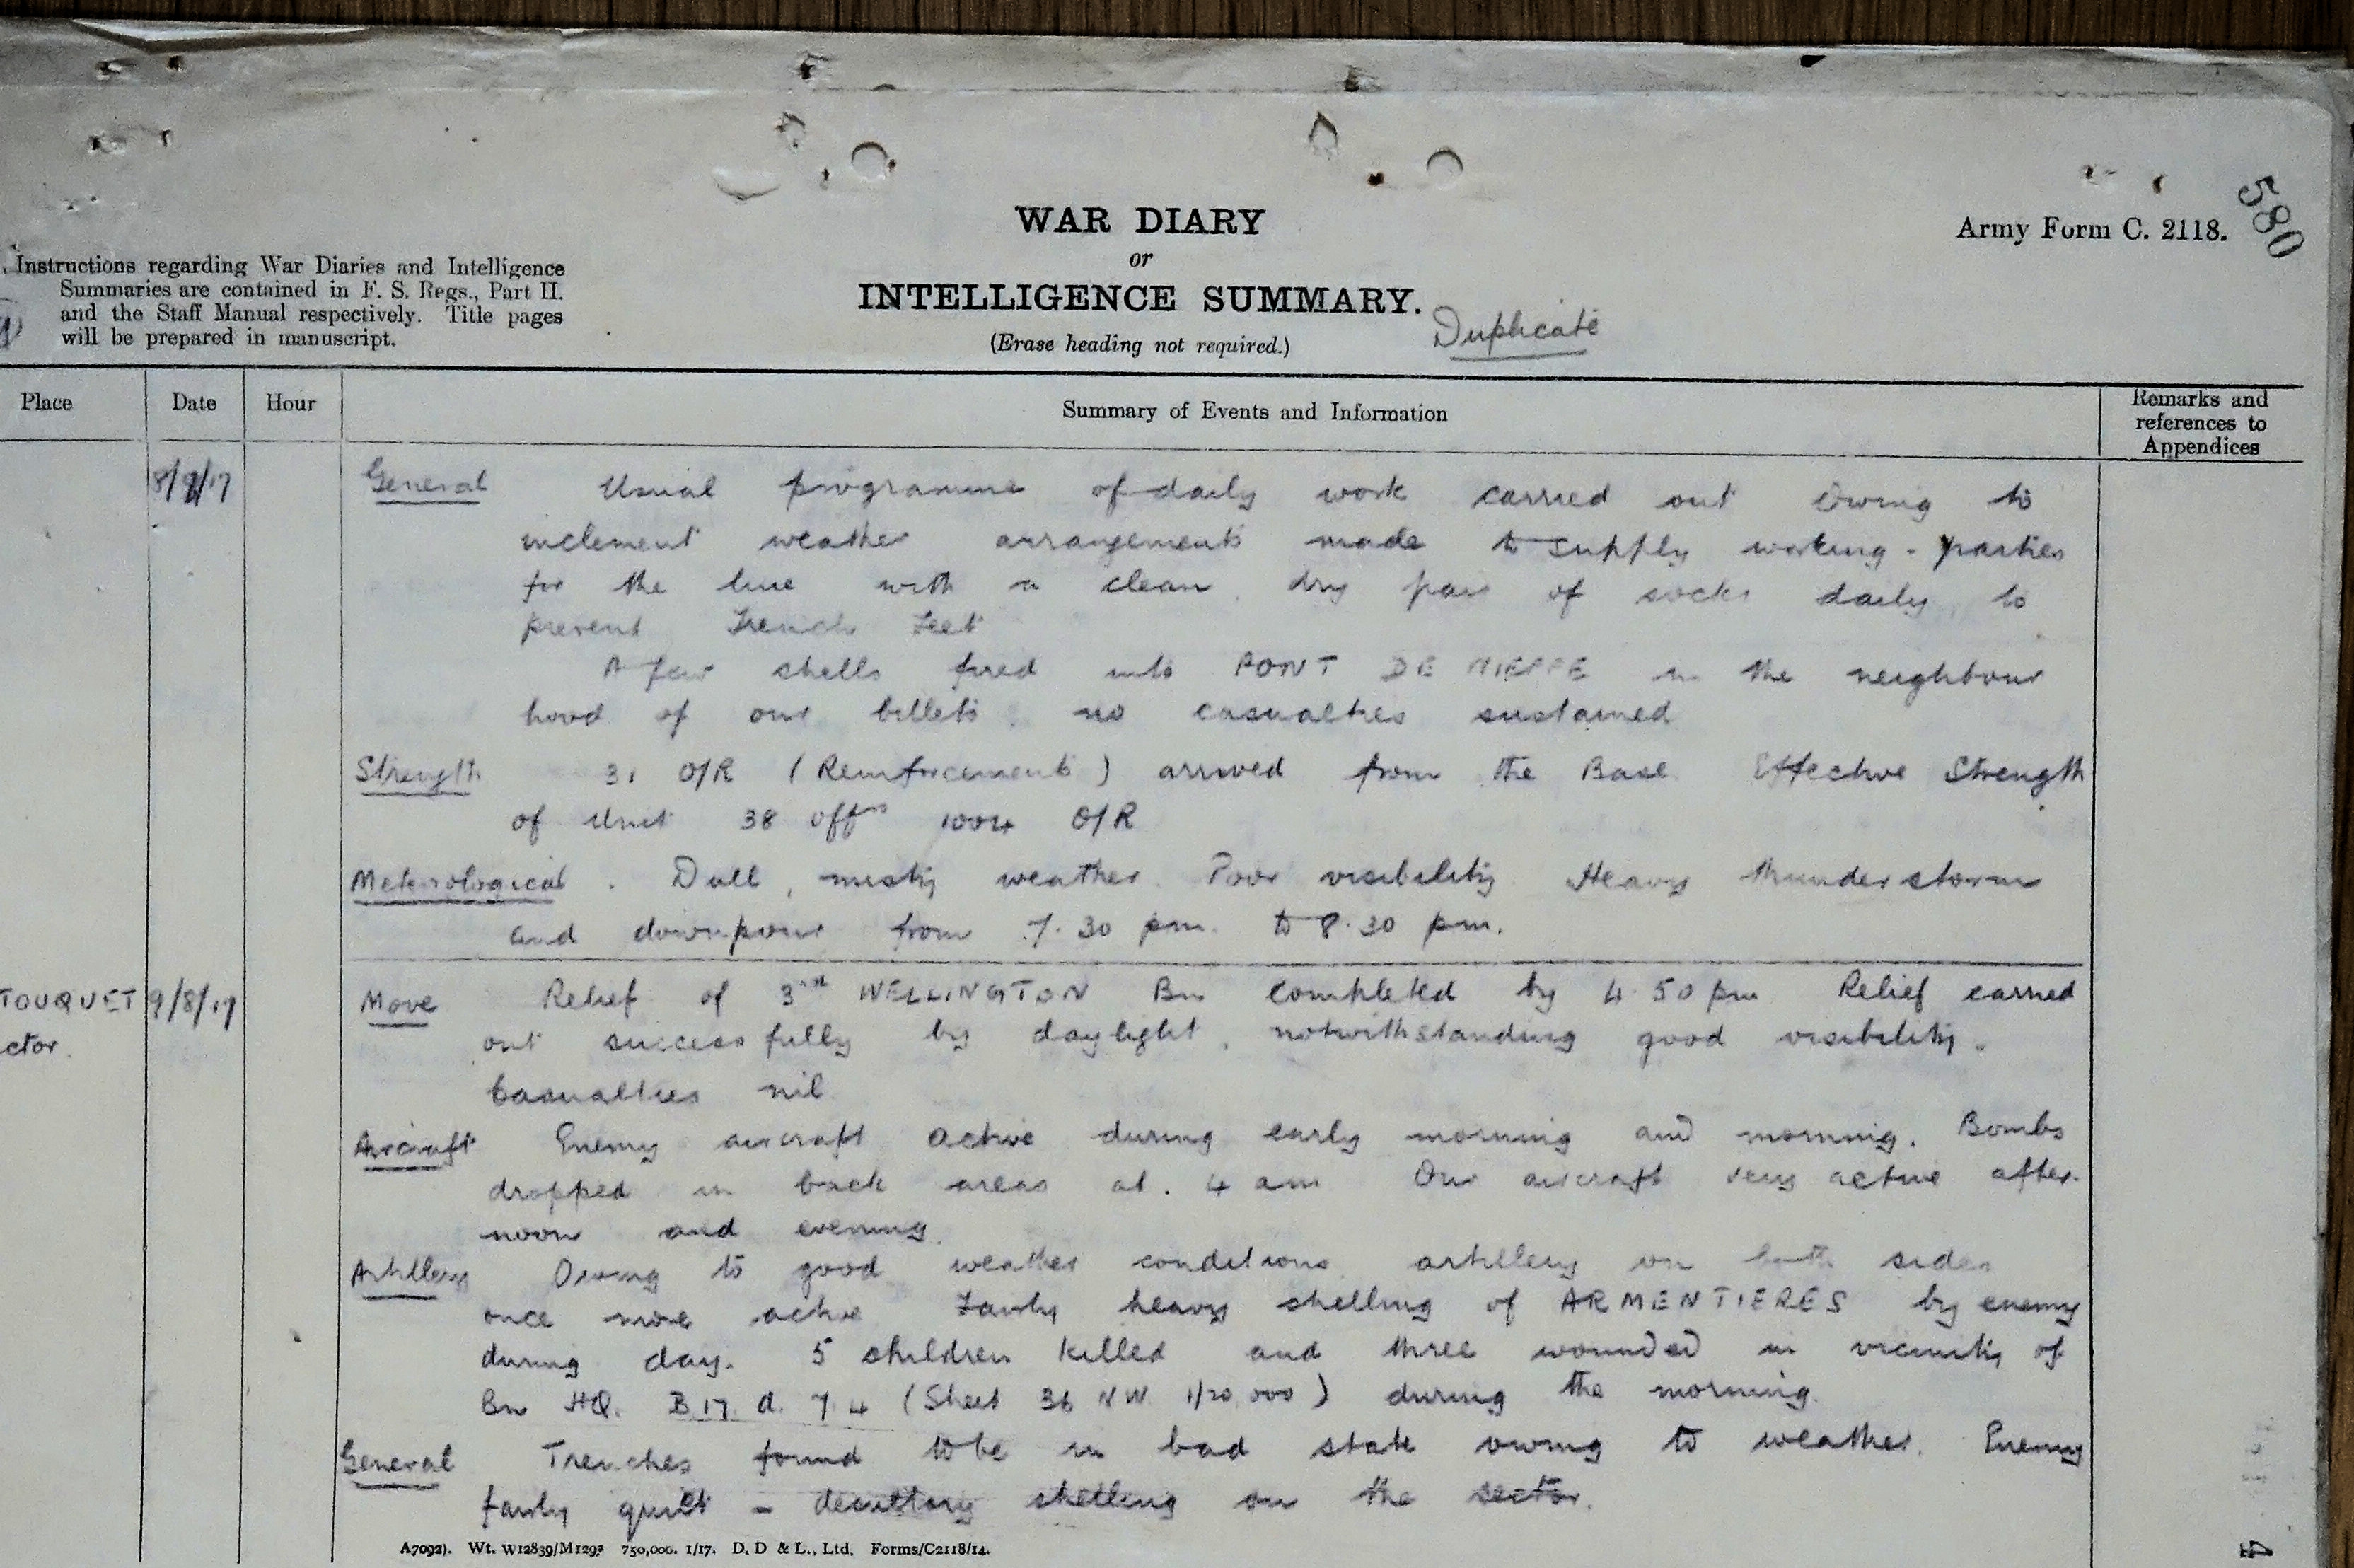 580
Army Form C. 2118.
WAR DIARY
or
INTELLIGENCE SUMMARY.
(Erase heading not required.)
Duplicate
Instructions regarding War Diaries and Intelligence
Summaries are contained in F. S. Regs., Part II.
and the Staff Manual respectively. Title pages
will be prepared in manuscript.
Place Date Hour Summary of Events and Information Remarks and
references to
Appendices
8/8/17 General Usual programme of daily work carried out Owing to
inclement weather arrangements made to supply working - parties
for the line with a clean, dry pair of socks daily, to
prevent Trench Feet
A few shells fired into PONT DE NIEPPE in the neighbour
hood of our billets. no casualties sustained
Strength 31 O/R (Reinforcements) arrived from the Base. Effective Strength
of Unit 38 offrs 1004 O/R
Meterological. Dull, misty weather. Poor visibility. Heavy thunder storm
and downpour from 7.30 pm. to 8.30 pm.
TOUQUET 9/8/17 Move Relief of 3rd WELLINGTON Bn completed by 4.50 pm Relief carried
ctor. out successfully by daylight, notwithstanding good visibility.
Casualties nil.
Aircraft Enemy aircraft active during early morning and morning. Bombs
dropped in back areas at. 4 am Our aircraft very active after-
noon and evening.
Artillery Owing to good weather conditions artillery on both sides
once more active Fairly heavy shelling of ARMENTIERES by enemy
during day. 5 children killed and three wounded in vicinity of
Bn HQ. B.17. d. 7.4 (Sheet 36 NW. 1/20,000) during the morning.
General Trenches found to be in bad state owing to weather. Enemy
fairly quiet - desultory shelling on the sector.
A7092). Wt. W12839/M1293 750,000. 1/17. D. D & L., Ltd. Forms/C2118/14.
4